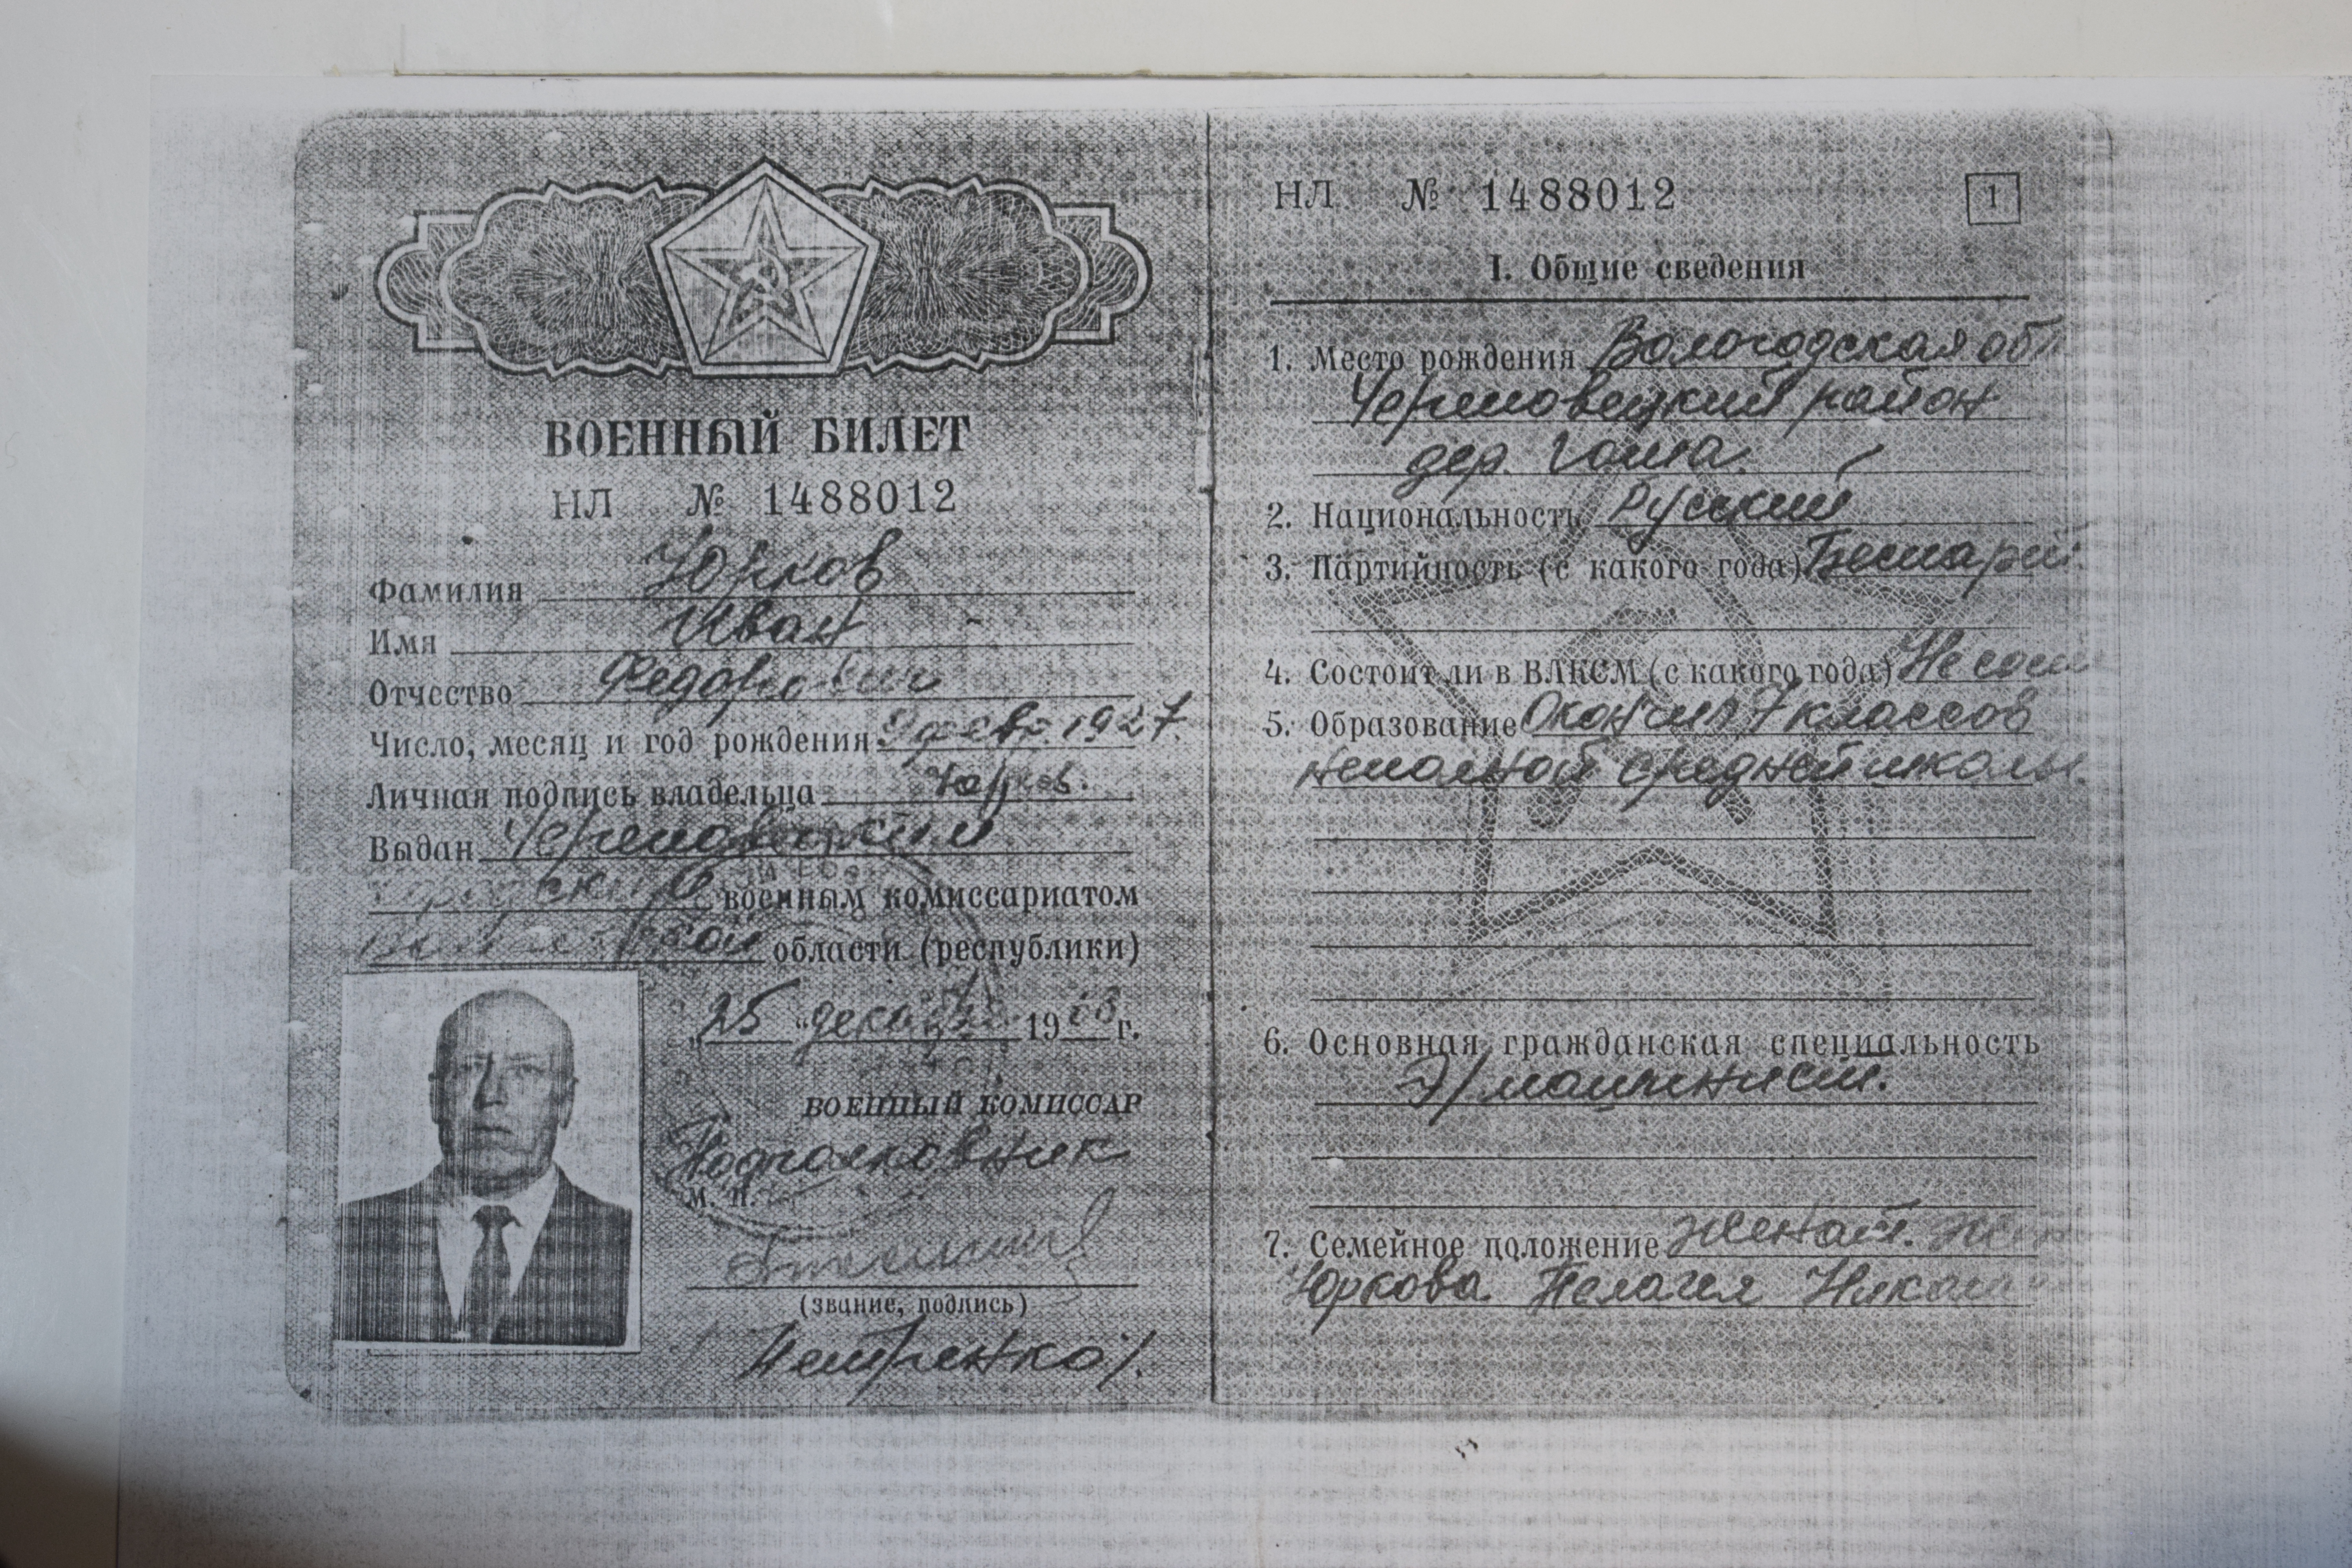 ВОЕННЫЙ БИЛЕТ
НЛ № 1488012
Фамилия Юрков
Имя Иван
Отчество Федорович
Число, месяц и год рождения 9 февр. 1927.
Личная подпись владельца Юрков.
Выдан Череповецким
городским военным комиссариатом
Вологодской области (республики)
„25 “ декабря 19 г.
ВОЕННЫЙ КОМИССАР
Подполковник
М. П.
(звание, подпись)
Петренко/.
НЛ № 1488012
1
I. Общие сведения
1. Место рождения Вологодская обл
Череповецкий район
дер.
2. Национальность Русский
3. Партийность (с какого года) Беспарт.
4. Состоит ли в ВЛКСМ (с какого года) Не сост
5. Образование Окончил 7 классов
неполной средней школы.
6. Основная гражданская специальность
Э/машинист.
7. Семейное положение Женат.
Юркова Пелагея